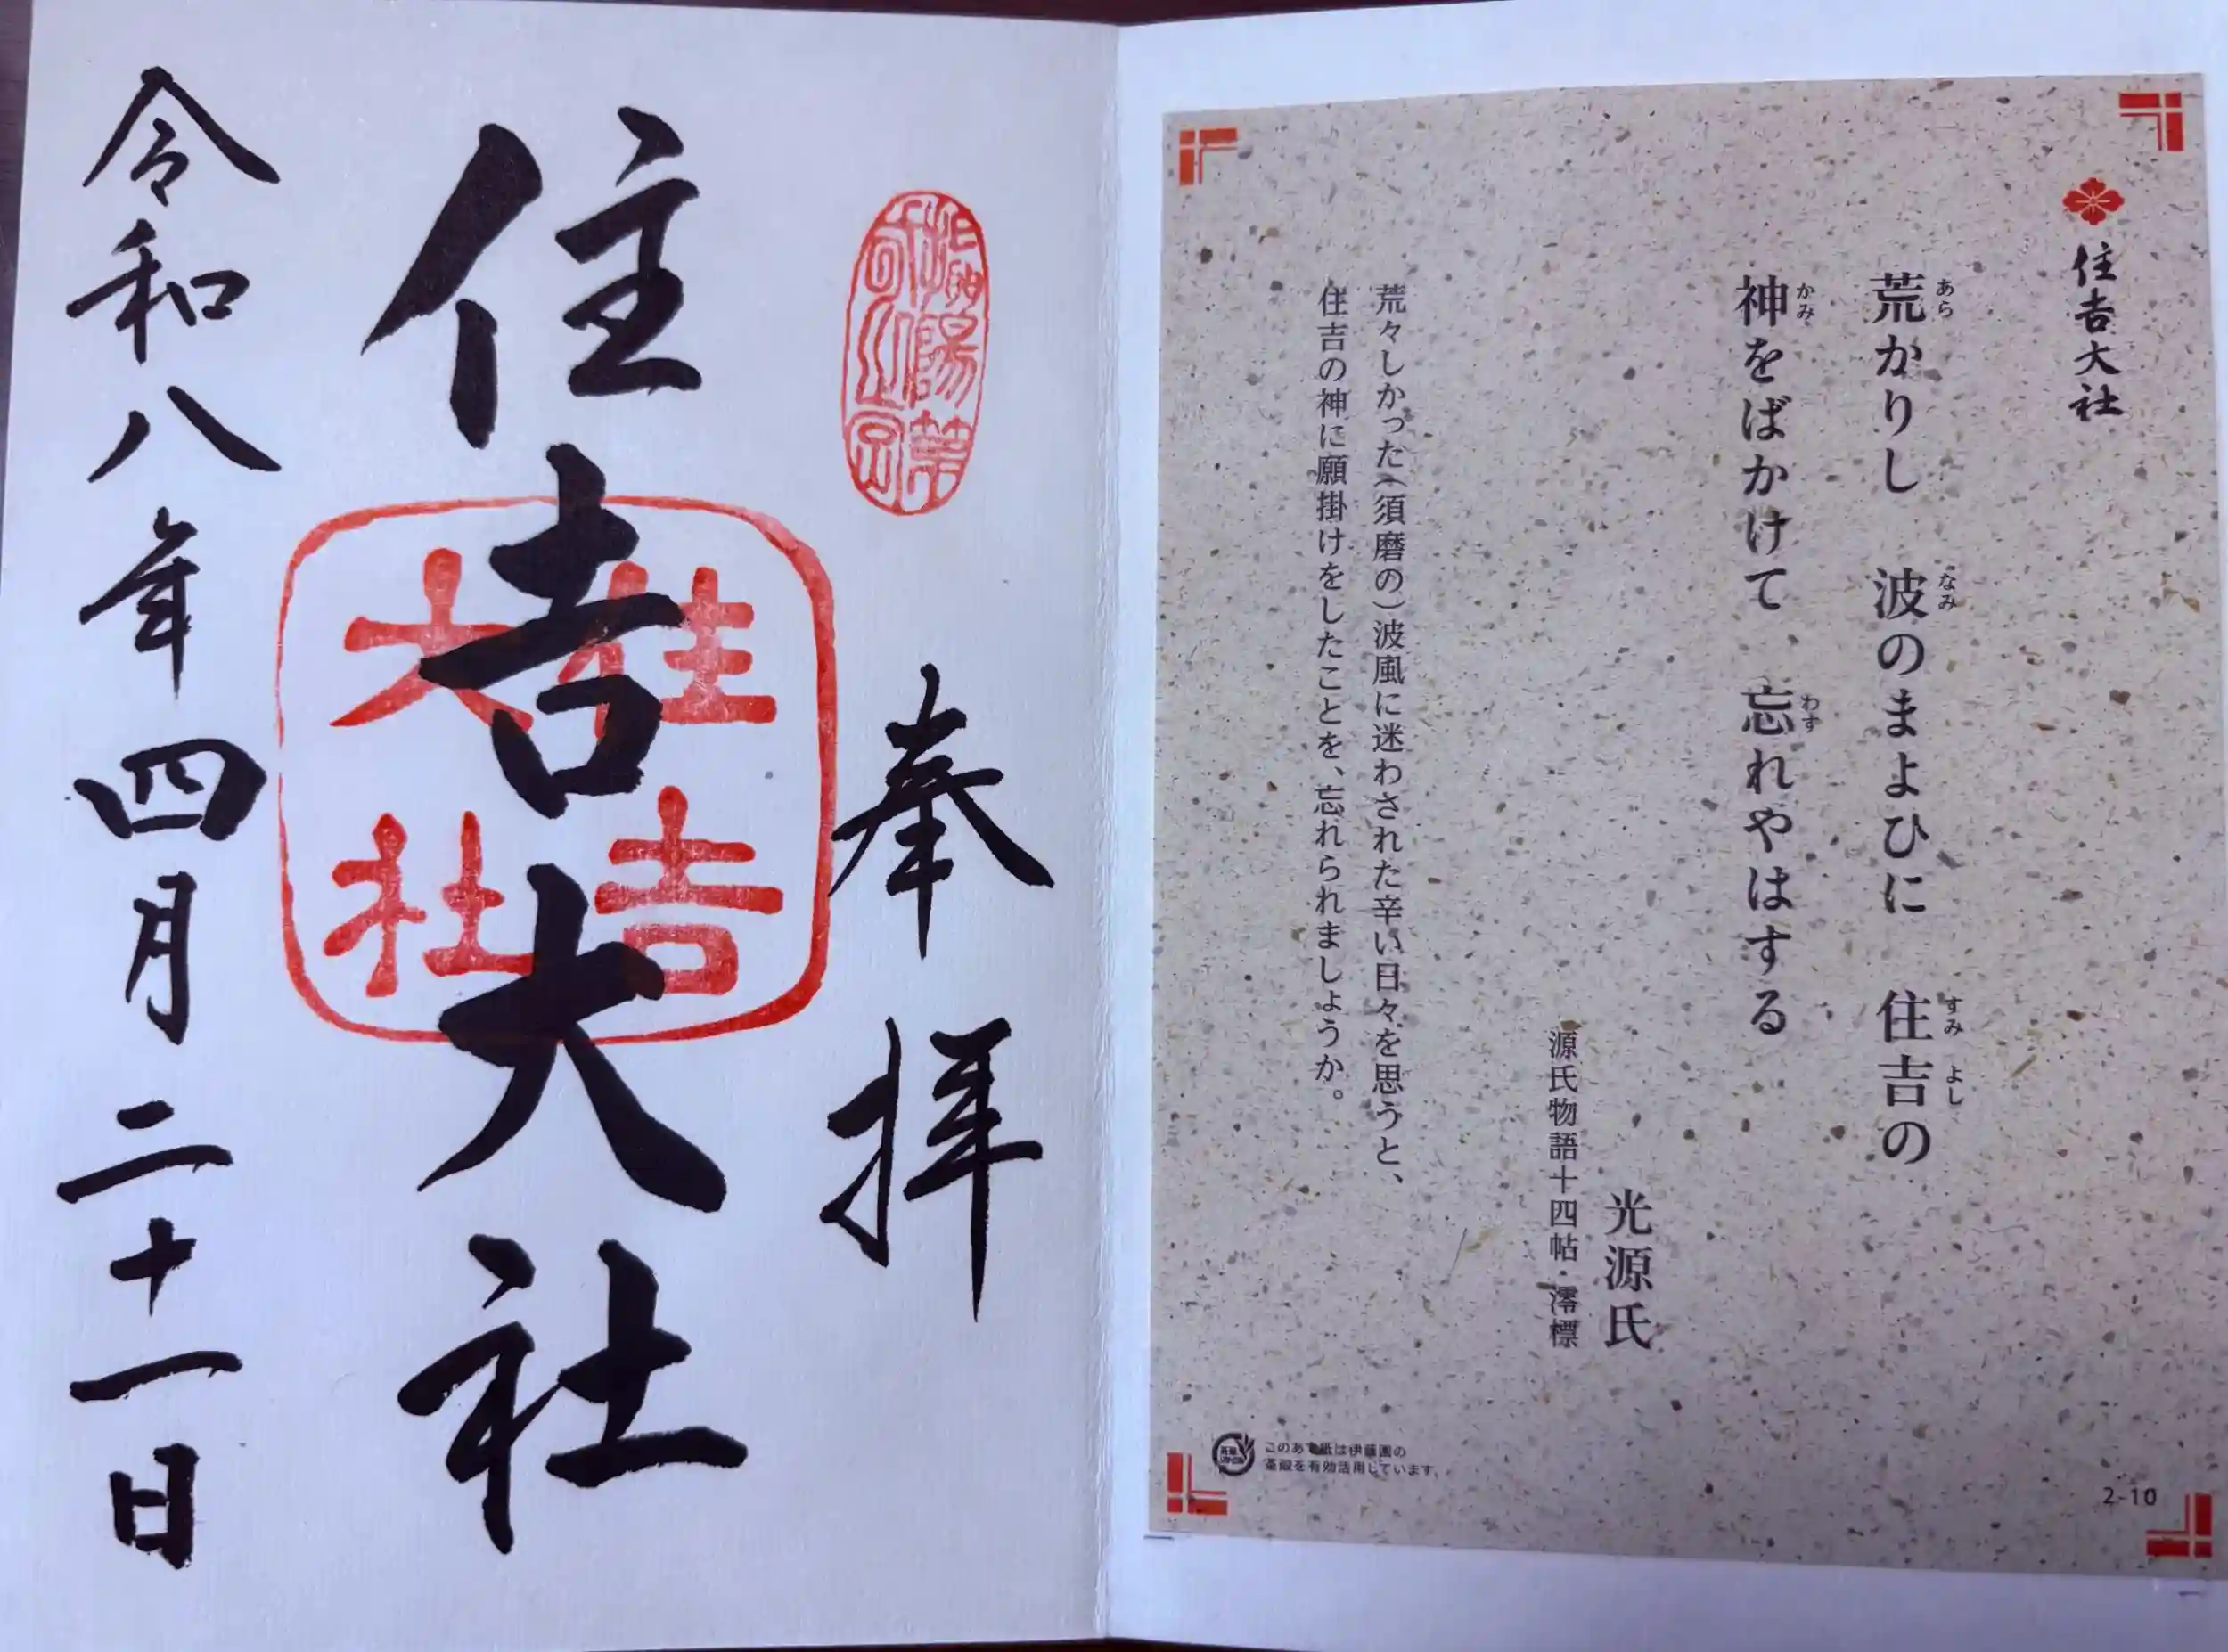 住吉大社
荒かりし 波のまよひに 住吉の
あら なみ すみ よし
神をばかけて 忘れやはする
かみ わす
光源氏
源氏物語十四帖・澪標
荒々しかった(須磨の)波風に迷わされた辛い日々を思うと、
住吉の神に願掛けをしたことを、忘れられましょうか。
このあぶら紙は伊藤園の
茶殻を有効活用しています。
2-10
奉拝
住吉大社
住吉
大社
令和八年四月二十一日